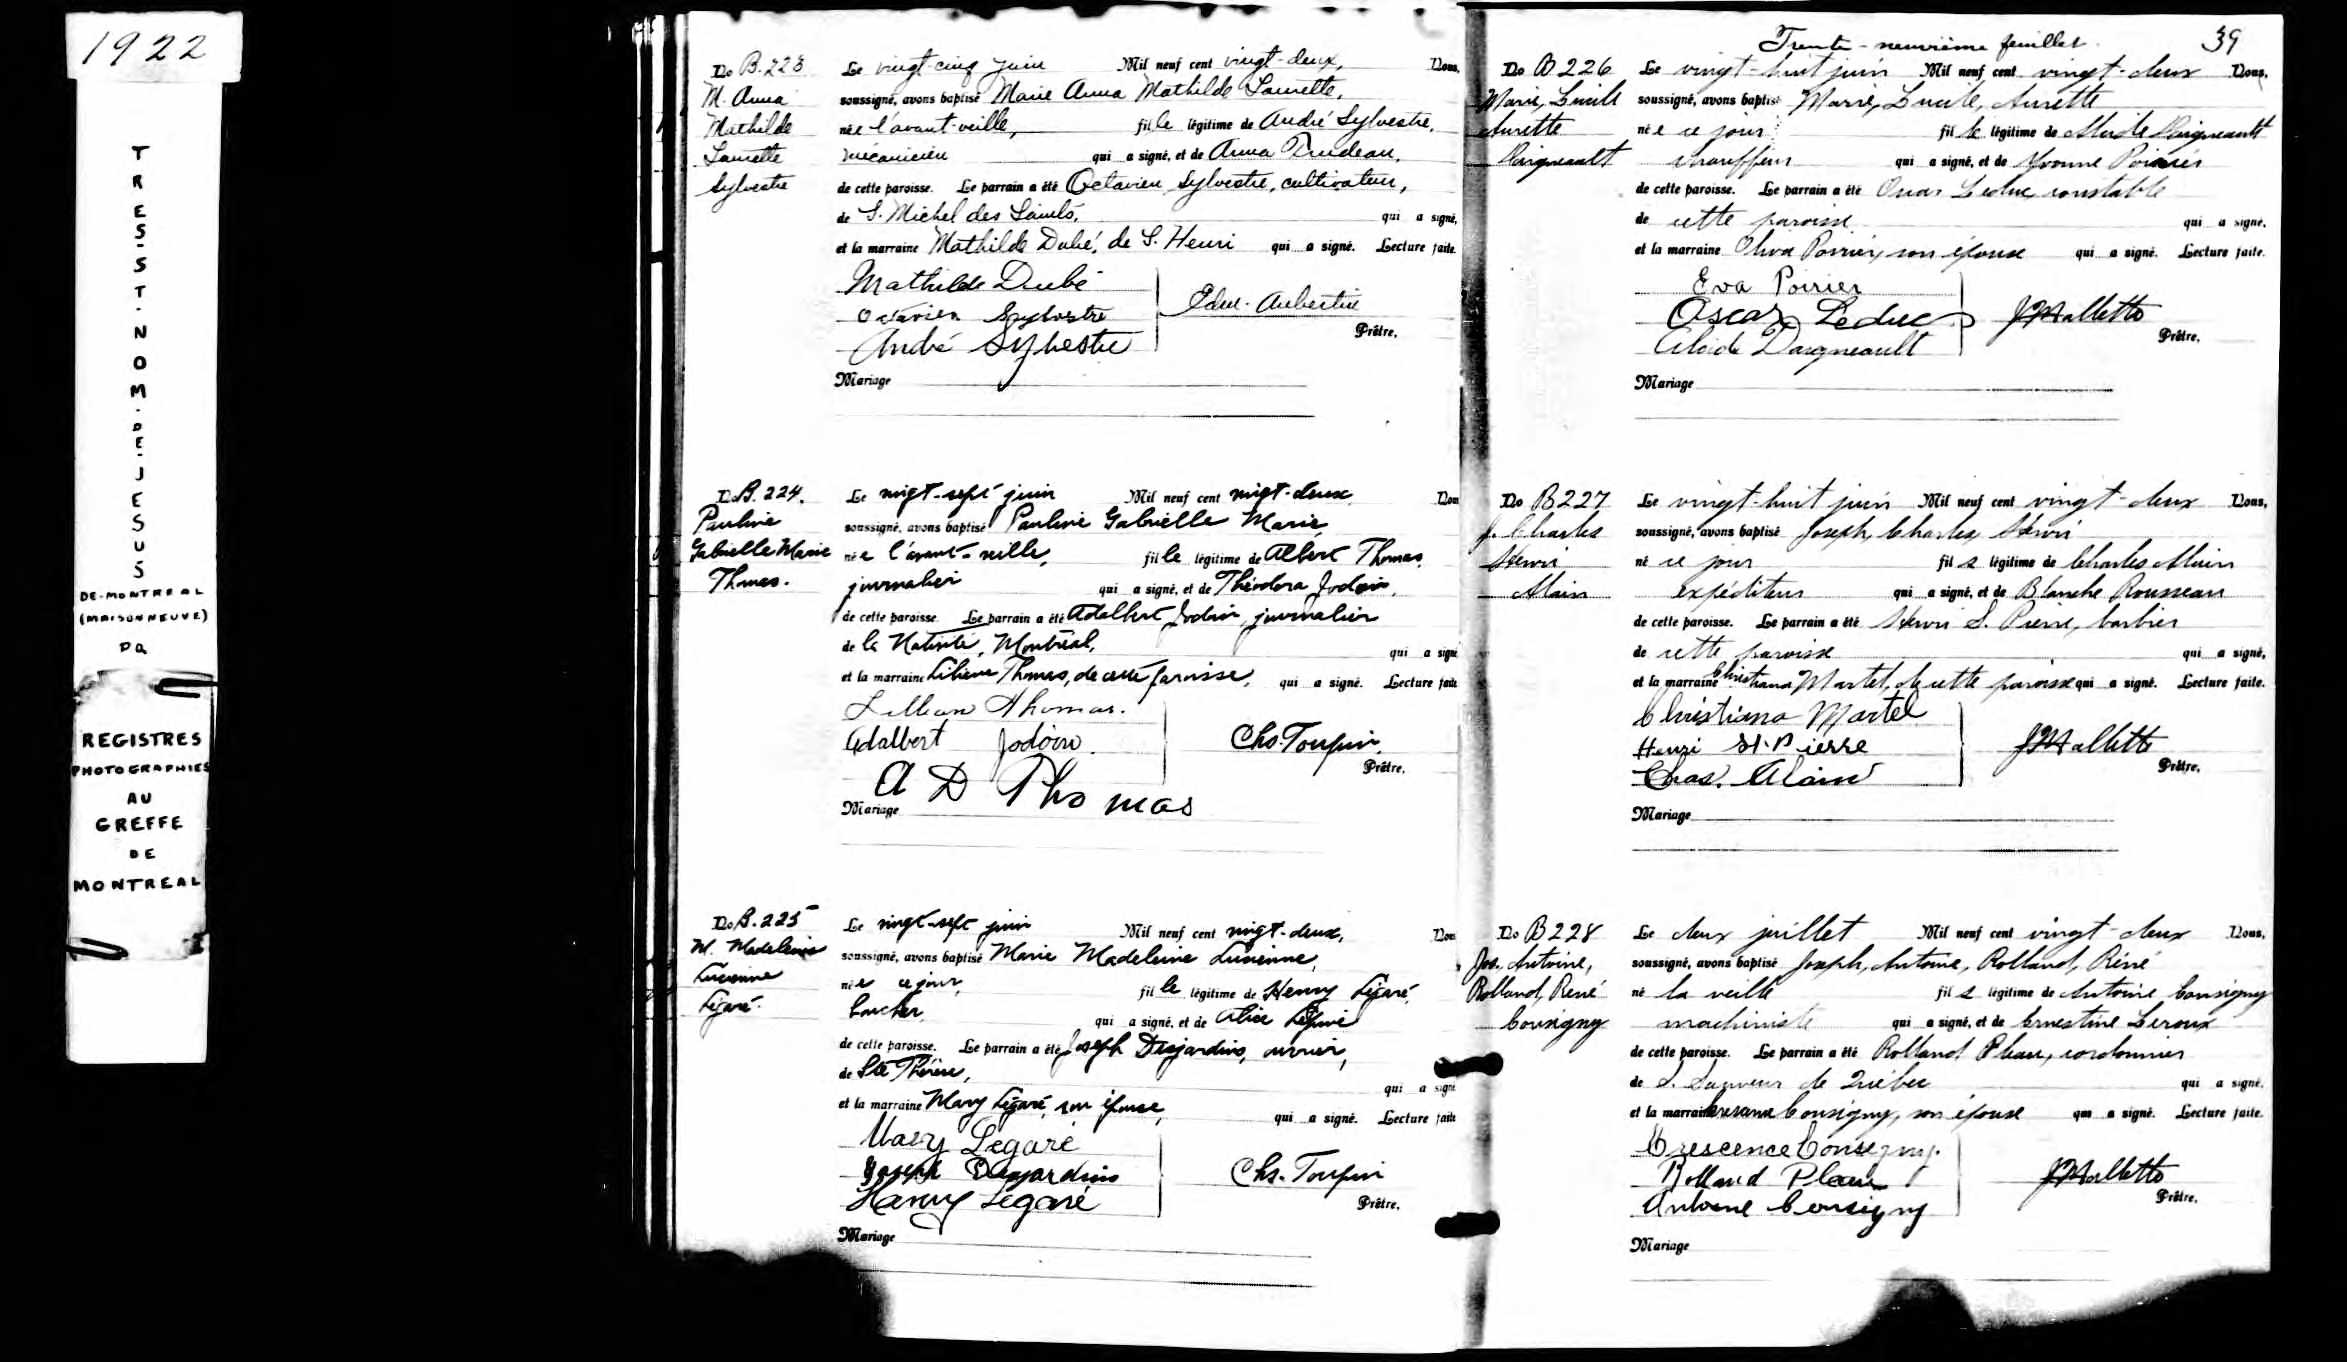 1922
TRES-ST-NOM-DE-JESUS
DE-MONTREAL
(MAISONNEUVE)
PQ
REGISTRES
PHOTOGRAPHIES
AU
GREFFE
DE
MONTREAL
No B.223
M. Anna
Mathilde
Laurette
Sylvestre
Le vingt-cinq juin Mil neuf cent vingt-deux, Nous,
soussigné, avons baptisé Marie Anna Mathilde Laurette,
née l'avant-veille, fille légitime de André Sylvestre,
mécanicien qui a signé, et de Anna Trudeau,
de cette paroisse. Le parrain a été Octavien Sylvestre, cultivateur,
de S. Michel des Saints, qui a signé,
et la marraine Mathilde Dubé, de S. Henri qui a signé. Lecture faite.
Mathilde Dubé
Octavien Sylvestre
André Sylvestre
Educ. Aubertin
Prêtre.
Mariage
No B.224.
Pauline
Gabrielle Marie
Thomas.
Le vingt-sept juin Mil neuf cent vingt-deux Nou
soussigné, avons baptisé Pauline Gabrielle Marie
née l'avant-veille, fille légitime de Albert Thomas,
journalier qui a signé, et de Théodora Jodoin,
de cette paroisse. Le parrain a été Adalbert Jodoin, journalier
de la Nativité, Montréal, qui a signé
et la marraine Liliane Thomas, de cette paroisse, qui a signé. Lecture faite
Lillian Thomas.
Adalbert Jodoin.
A D Thomas
Chs. Toupin
Prêtre.
Mariage
No B.225
M. Madeleine
Lucienne
Légaré.
Le vingt-sept juin Mil neuf cent vingt-deux, Nou
soussigné, avons baptisé Marie Madeleine Lucienne,
née ce jour, fille légitime de Henry Légaré,
boucher, qui a signé, et de Alice
de cette paroisse. Le parrain a été Joseph Desjardins, ouvrier,
de Ste Thérèse, qui a signé
et la marraine Mary Légaré, son épouse, qui a signé. Lecture faite
Mary Legaré
Joseph Desjardins
Henry Légaré
Chs. Toupin
Prêtre.
Mariage
Trente-neuvième feuillet. 39
No B226
Marie, Lucile
Aurette
Daigneault
Le vingt-huit juin Mil neuf cent vingt-deux Nous,
soussigné, avons baptisé Marie, Lucile, Aurette
née ce jour fille légitime de Alcide Daigneault
chauffeur qui a signé, et de Yvonne Poirier
de cette paroisse. Le parrain a été Oscar Leduc, constable
de cette paroisse qui a signé,
et la marraine Poirier, son épouse qui a signé. Lecture faite.
Eva Poirier
Oscar Leduc
Alcide Daigneault
J Mallette
Prêtre.
Mariage
No B227
J. Charles
Henri
Alain
Le vingt-huit juin Mil neuf cent vingt-deux Nous,
soussigné, avons baptisé Joseph, Charles, Henri
né ce jour fils légitime de Charles Alain
expéditeur qui a signé, et de Blanche Rousseau
de cette paroisse. Le parrain a été Henri S. Pierre, barbier
de cette paroisse qui a signé,
et la marraine Christiana Martel, de cette paroisse qui a signé. Lecture faite.
Christiana Martel
Henri St. Pierre
Chas. Alain
J Mallette
Prêtre.
Mariage
No B228
Jos. Antoine,
Rolland, René
Consigny
Le deux juillet Mil neuf cent vingt-deux Nous,
soussigné, avons baptisé Joseph, Antoine, Rolland, Réné
né la veille fils légitime de Antoine Consigny
machiniste qui a signé, et de Ernestine Leroux
de cette paroisse. Le parrain a été Rolland Plean, cordonnier
de S. Sauveur de Québec qui a signé.
et la marraine Consigny, son épouse qui a signé. Lecture faite.
Crescence Consigny.
Rolland Plean
Antoine Consigny
J Mallette
Prêtre.
Mariage